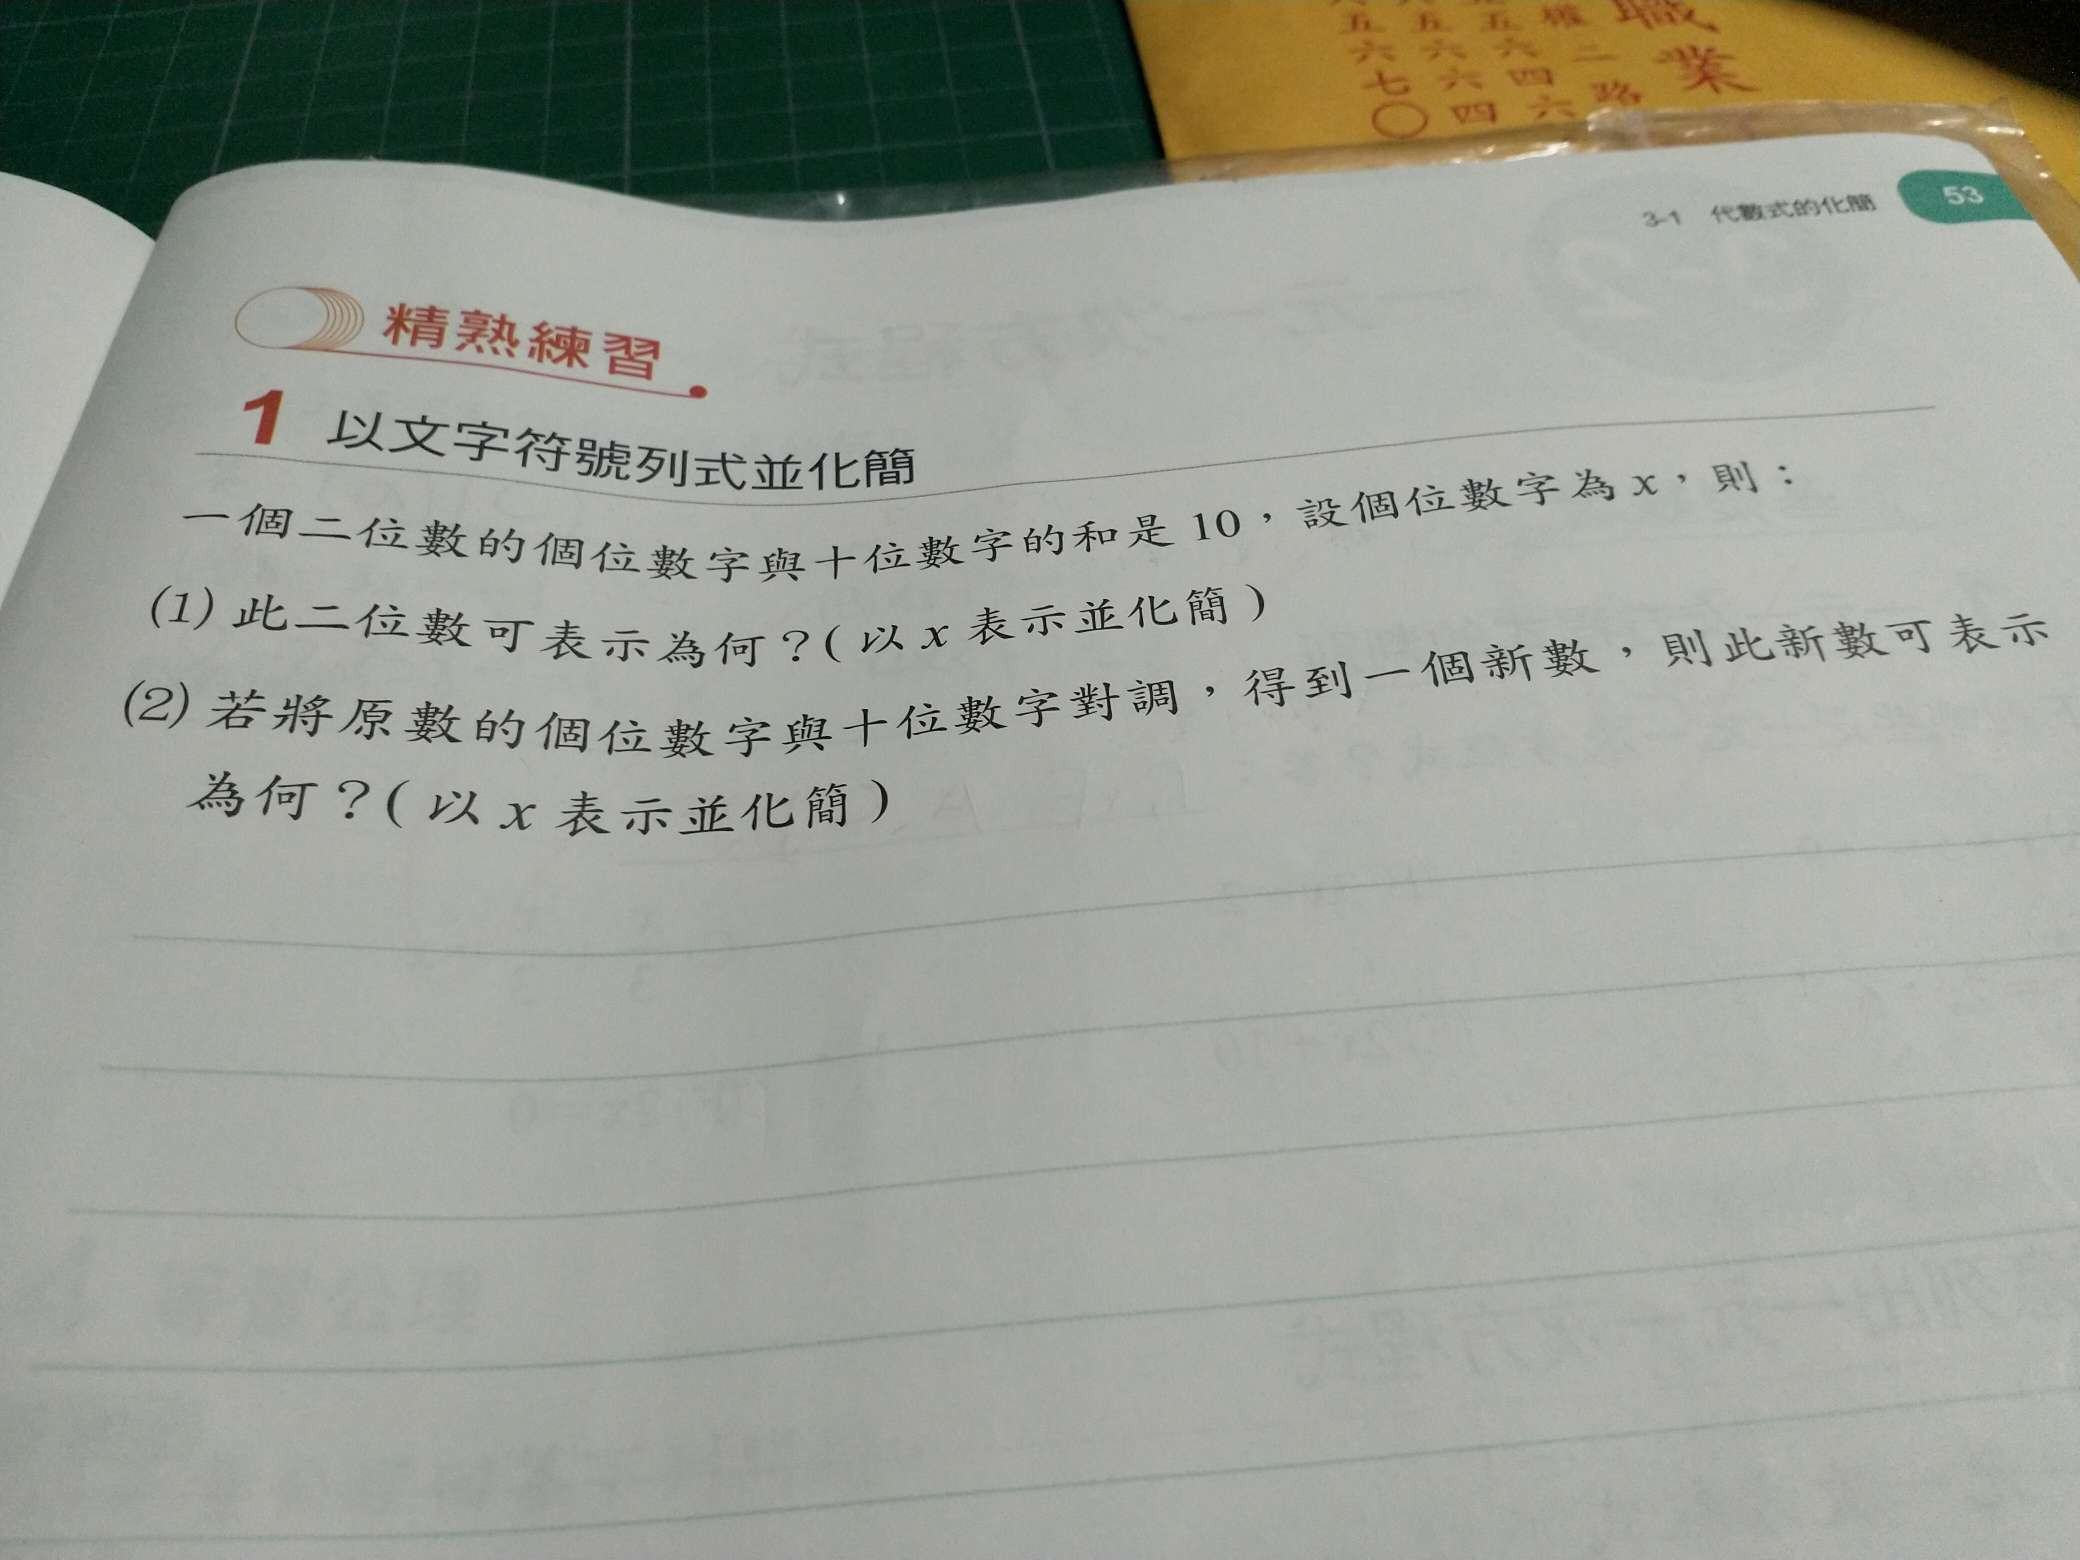 職業
權二路
五六四六
五六六四
五六七〇
3-1 代數式的化簡 53
精熟練習
1 以文字符號列式並化簡
一個二位數的個位數字與十位數字的和是 10，設個位數字為 x，則：
(1) 此二位數可表示為何？( 以 x 表示並化簡 )
(2) 若將原數的個位數字與十位數字對調，得到一個新數，則此新數可表示
為何？( 以 x 表示並化簡 )